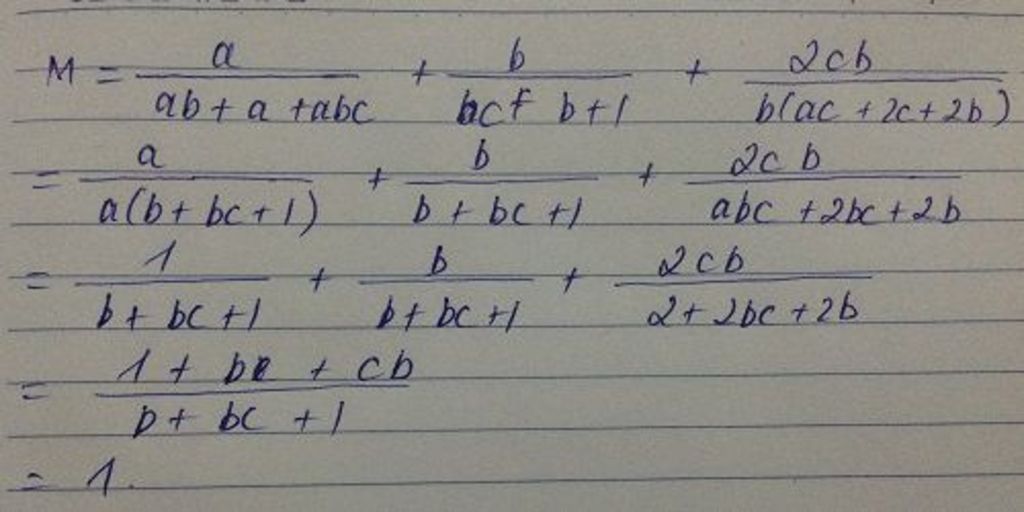 M = a/(ab + a + abc) + b/(bc + b + 1) + 2cb/(b(ac + 2c + 2b))
= a/(a(b + bc + 1)) + b/(b + bc + 1) + 2cb/(abc + 2bc + 2b)
= 1/(b + bc + 1) + b/(b + bc + 1) + 2cb/(2 + 2bc + 2b)
= (1 + b + cb)/(b + bc + 1)
= 1.